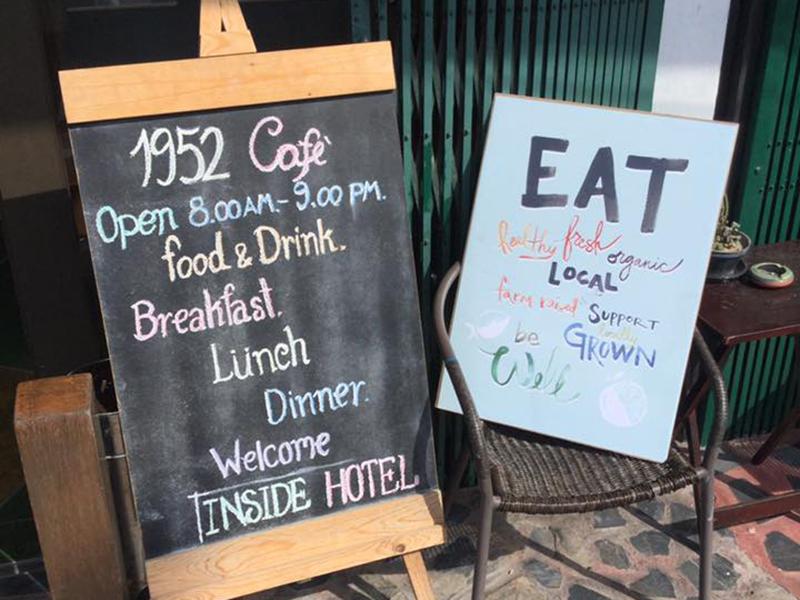 1952 Cafe
Open 8.00 AM.- 9.00 PM.
food & Drink.
Breakfast.
Lunch
Dinner.
Welcome
INSIDE HOTEL
EAT
healthy fresh organic
LOCAL
farm raised SUPPORT
locally
be GROWN
Well